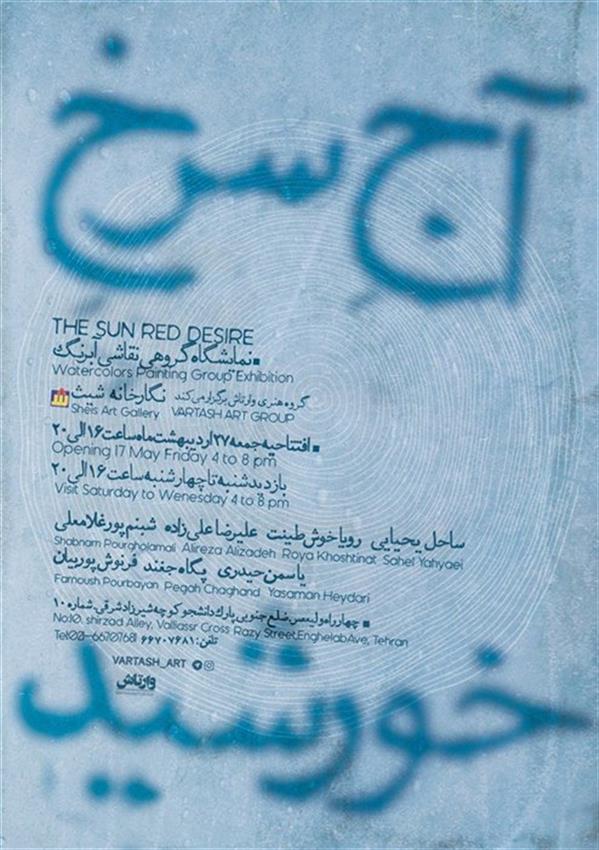 آج سرخ
THE SUN RED DESIRE
نمایشگاه گروهی نقاشی آبرنگ
Watercolors Painting Group Exhibition
گروه هنری وارتاش برگزار می کند نگارخانه شیث
Sheis Art Gallery VARTASH ART GROUP
افتتاحیه جمعه ۲۷ اردیبهشت ماه ساعت ۱۶ الی ۲۰
Opening 17 May Friday 4 to 8 pm
بازدید شنبه تا چهارشنبه ساعت ۱۶ الی ۲۰
Visit Saturday to Wenesday 4 to 8 pm
ساحل یحیایی رویا خوش طینت علیرضا علی زاده شبنم پورغلامعلی
Shabnam Pourgholamali Alireza Alizadeh Roya Khoshtinat Sahel Yahyaei
یاسمن حیدری پگاه جغند فرنوش پوربیان
Farnoush Pourbayan Pegah Chaghand Yasaman Heydari
چهارراه ولیعصر، ضلع جنوبی پارک دانشجو کوچه شیرزاد شرقی، شماره ۱۰
No:10, shirzad Alley, Valiassr Cross Razy Street, Enghelab Ave, Tehran
Tel:00-66707681 تلفن: ۶۶۷۰۷۶۸۱
VARTASH_ART
وارتاش
خورشید